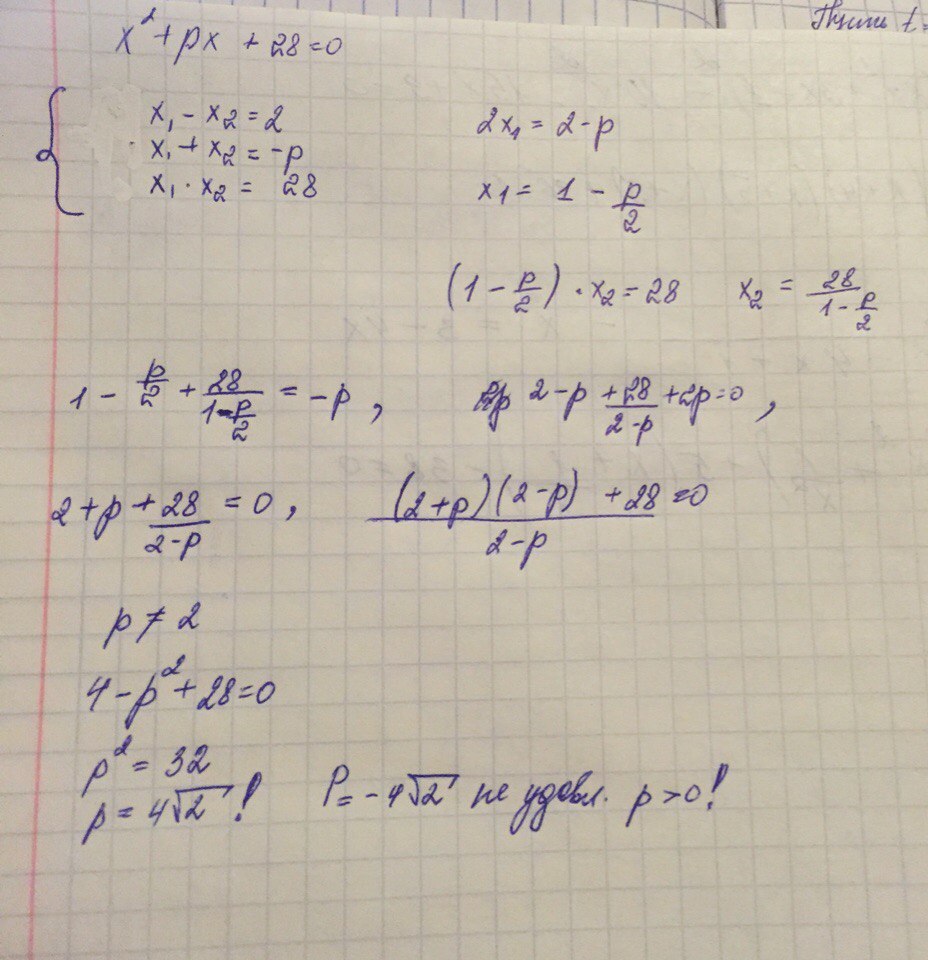 Пусть t
x² + px + 28 = 0
x₁ - x₂ = 2
x₁ + x₂ = -p
x₁ · x₂ = 28
2x₁ = 2 - p
x1 = 1 - p/2
(1 - p/2) · x₂ = 28 x₂ = 28/(1 - p/2)
1 - p/2 + 28/(1 - p/2) = -p, 2 - p + 28/(2-p) + 2p = 0,
2 + p + 28/(2-p) = 0, ((2+p)(2-p) + 28)/(2-p) = 0
p ≠ 2
4 - p² + 28 = 0
p² = 32
p = 4√2! P = -4√2 не удовл. p > 0!